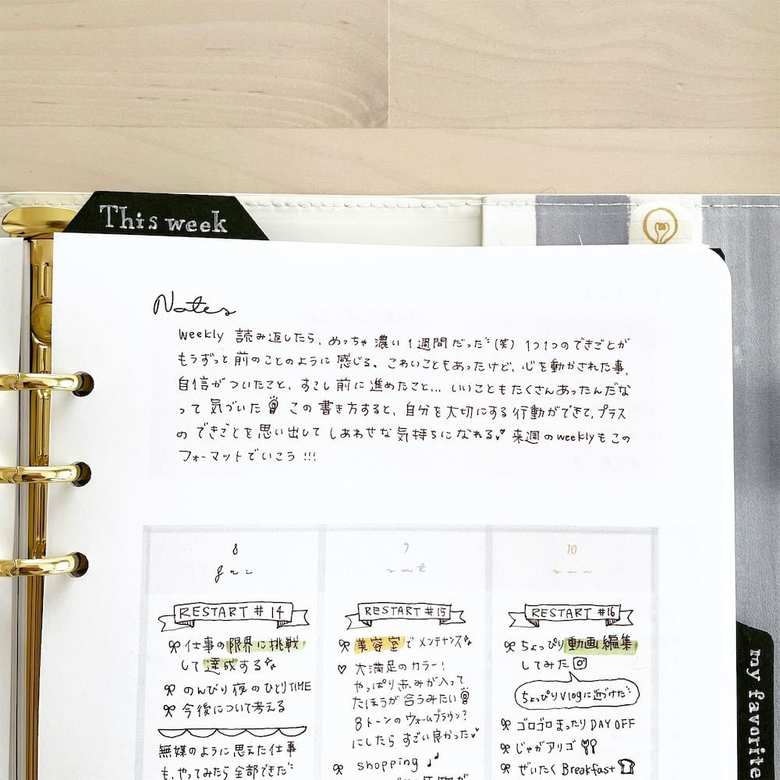 This week
Notes
Weekly 読み返したら、めっちゃ濃い1週間だった(笑) 1つ1つのできごとが
もうずっと前のことのように感じる。こわいこともあったけど、心を動かされた事、
自信がついたこと、すこし前に進めたこと... いいこともたくさんあったんだな
って気づいた この書き方すると、自分を大切にする行動ができて、プラス
のできごとを思い出してしあわせな気持ちになれる♡ 来週のweeklyもこの
フォーマットでいこう!!!
8
fri
RESTART #14
仕事の限界に挑戦
して達成する
のんびり夜のひとりTIME
今後について考える
無謀のように思えた仕事
も、やってみたら全部できた
9
sat
RESTART #15
美容室でメンテナンス
♡ 大満足のカラー!
やっぱり赤みが入って
たほうが合うみたい
8トーンのウォームブラウン?
にしたらすごい良かった♡
shopping ♪
10
RESTART #16
ちょっぴり動画編集
してみた
ちょっぴりVlogに近づけた
ゴロゴロまったりDAY OFF
じゃがアリゴ
ぜいたくBreakfast
my favorite